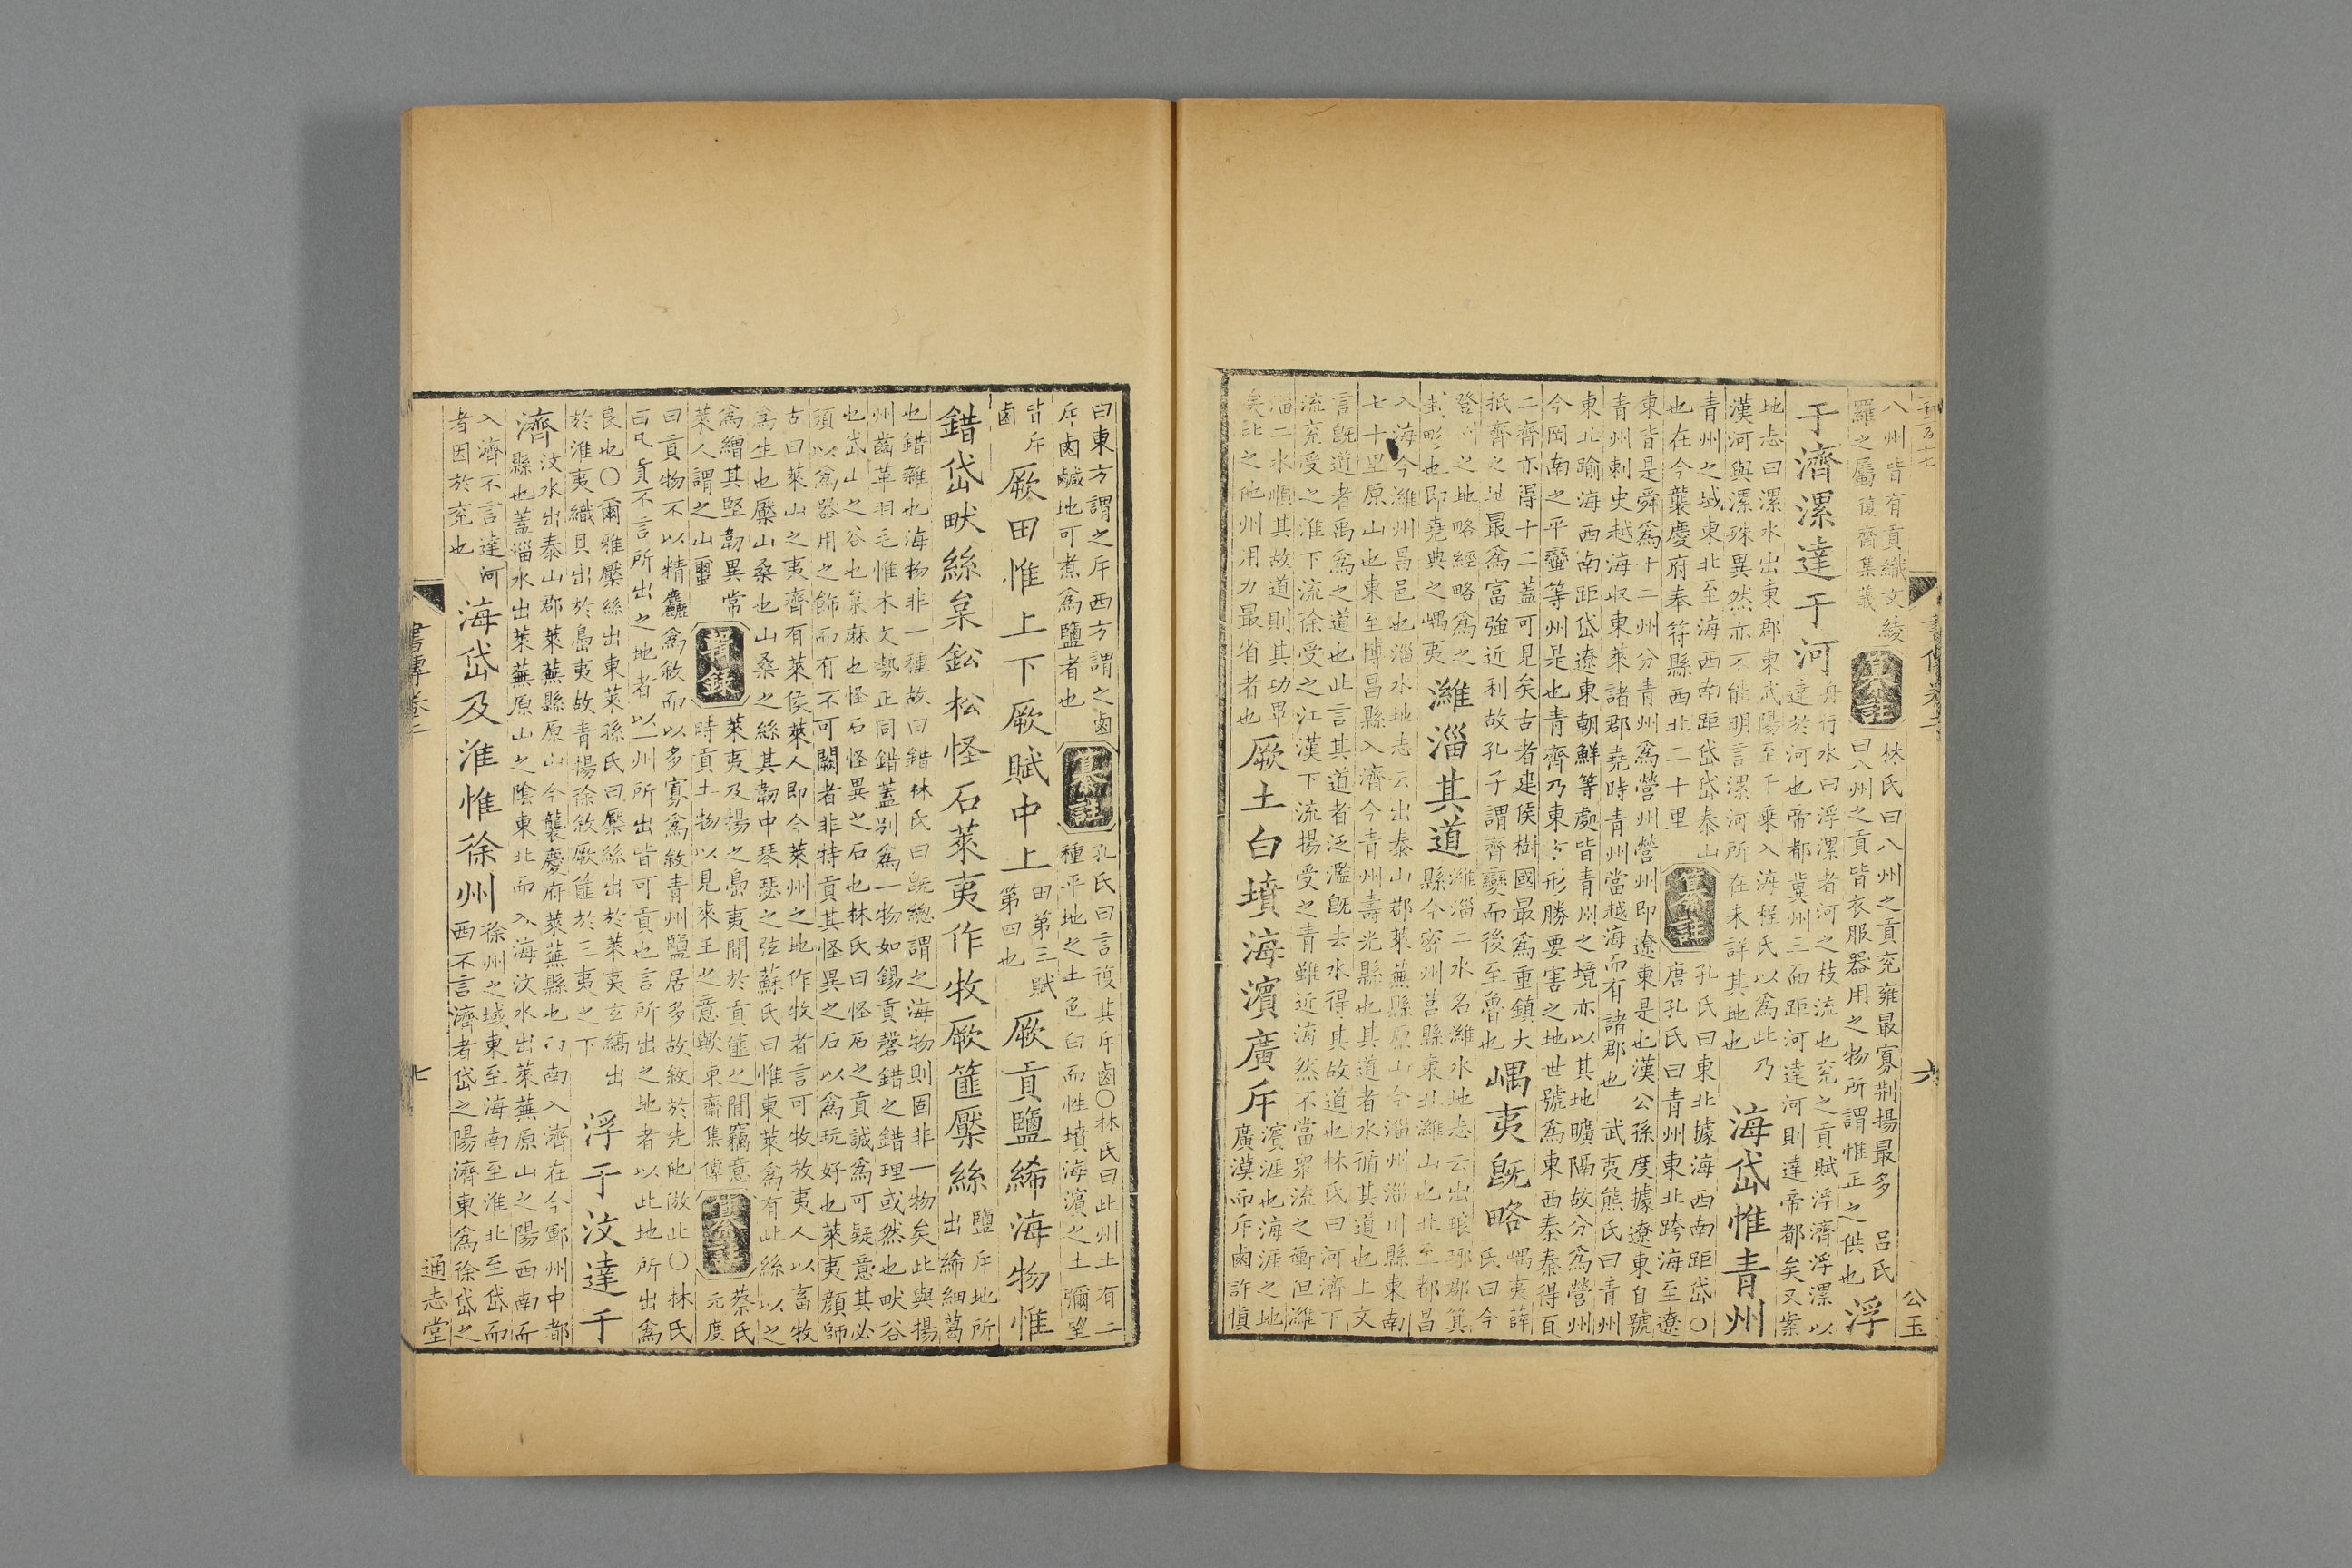 八州皆有貢織文綾
羅之屬復齋集義
纂註
林氏曰八州之貢兖雍最寡荆揚最多 呂氏
曰八州之貢皆衣服器用之物所謂惟正之供也
浮
于濟漯達于河
舟行水曰浮漯者河之枝流也兖之貢賦浮濟浮漯以
達於河也帝都冀州三面距河達河則達帝都矣又案
地志曰漯水出東郡東武陽至千乗入海程氏以為此乃
漢河與漯殊異然亦不能明言漯河所在未詳其地也
海岱惟青州
青州之域東北至海西南距岱岱泰山
也在今襲慶府奉符縣西北二十里
纂註
孔氏曰東北據海西南距岱○
唐孔氏曰青州東北跨海至遼
東皆是舜為十二州分青州為營州營州即遼東是也漢公孫度據遼東自號
青州刺史越海收東萊諸郡堯時青州當越海而有諸郡也 武夷熊氏曰青州
東北踰海西南距岱遼東朝鮮等處皆青州之境亦以其地曠隔故分為營州
今岡南之平壐等州是也青齊乃東方形勝要害之地世號為東西秦秦得百
二齊亦得十二蓋可見矣古者建侯樹國最為重鎮大
抵齊之地最為富強近利故孔子謂齊變而後至魯也
嵎夷旣略
嵎夷薛
氏曰今
登州之地略經略為之
封畛也即堯典之嵎夷
濰淄其道
濰淄二水名濰水地志云出琅琊郡箕
縣今密州莒縣東北濰山也北至都昌
入海今濰州昌邑也淄水地志云出泰山郡萊蕪縣原山今淄州淄川縣東南
七十里原山也東至博昌縣入濟今青州壽光縣也其道者水循其道也上文
言旣道者禹為之道也此言其道者泛濫旣去水得其故道也林氏曰河濟下
流兖受之淮下流徐受之江漢下流揚受之青雖近海然不當衆流之衝但濰
淄二水順其故道則其功畢
矣比之他州用力最省者也
厥土白墳海濱廣斥
濱涯也海涯之地
廣漠而斥鹵許愼
書傳卷二
六
公玉
曰東方謂之斥西方謂之鹵
斥鹵鹹地可煮為鹽者也
纂註
孔氏曰言復其斥鹵○林氏曰此州土有二
種平地之土色白而性墳海濱之土彌望
皆斥
鹵
厥田惟上下厥賦中上
田第三賦
第四也
厥貢鹽絺海物惟
錯岱畎絲枲鈆松怪石萊夷作牧厥篚檿絲
鹽斥地所
出絺細葛
也錯雜也海物非一種故曰錯林氏曰旣總謂之海物則固非一物矣此與揚
州齒革羽毛惟木文勢正同錯蓋别為一物如錫貢磬錯之錯理或然也畎谷
也岱山之谷也枲麻也怪石怪異之石也林氏曰怪石之貢誠為可疑意其必
須以為器用之飾而有不可闕者非特貢其怪異之石以為玩好也萊夷顔師
古曰萊山之夷齊有萊侯萊人即今萊州之地作牧者言可牧放夷人以畜牧
為生也檿山桑也山桑之絲其韌中琴瑟之弦蘇氏曰惟東萊為有此絲以之
為繒其堅韌異常
萊人謂之山蠒
輯錄
萊夷及揚之島夷閒於貢篚之閒竊意
時貢土物以見來王之意歟東齋集傳
纂註
蔡氏
元度
曰貢物不以精麤為敘而以多寡為敘青州鹽居多故敘於先他倣此○林氏
曰凡貢不言所出之地者以一州所出皆可貢也言所出之地者以此地所出為
良也○爾雅檿絲出東萊孫氏曰檿絲出於萊夷玄縞出
於淮夷織貝出於島夷故青揚徐敘厥篚於三夷之下
浮于汶達于
濟
汶水出泰山郡萊蕪縣原山今襲慶府萊蕪縣也西南入濟在今鄆州中都
縣也蓋淄水出萊蕪原山之陰東北而入海汶水出萊蕪原山之陽西南而
入濟不言達河
者因於兖也
海岱及淮惟徐州
徐州之域東至海南至淮北至岱而
西不言濟者岱之陽濟東為徐岱之
書傳卷二
七
通志堂